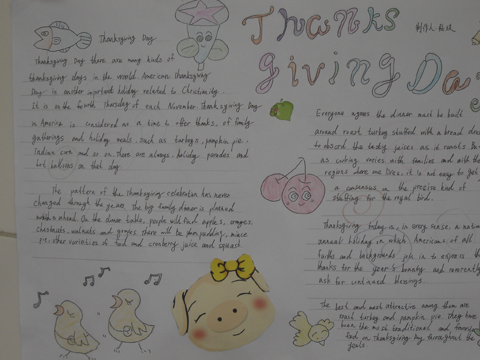 Thanks
Giving Da
Thanksgiving Day
Thanksgiving Day there are many kinds of
thanksgiving days in the world. American thanksgiving
Day is another important holiday related to Christianity.
It is on the fourth Thursday of each November. Thanksgiving Day
in America is considered as a time to offer thanks, of family
gatherings and holiday meals. such as turkeys, pumpkin pie,
Indian corn and so on. There are always holiday parades and
hot balloons on that day.
The pattern of the Thanksgiving celebration has never
changed through the years. The big family dinner is planned
months ahead. On the dinner table, people will find apples, oranges,
chestnuts, walnuts and grapes. there will be plum pudding, mince
pie, other varieties of food and cranberry juice and squash.
Everyone agrees the dinner must be built
around roast turkey stuffed with a bread dress
to absorb the tasty juices as it roasts. But
as cooking varies with families and with the
regions where one lives, it is not easy to get
a consensus on the precise kind of
stuffing for the royal bird.
Thanksgiving today is, in every sense, a national
annual holiday on which Americans of all
faiths and backgrounds join in to express their
thanks for the year's bounty and reverently
ask for continued blessings.
The best and most attractive among them are
roast turkey and pumpkin pie. They have
been the most traditional and favorite
food on thanksgiving day throughout the
years.